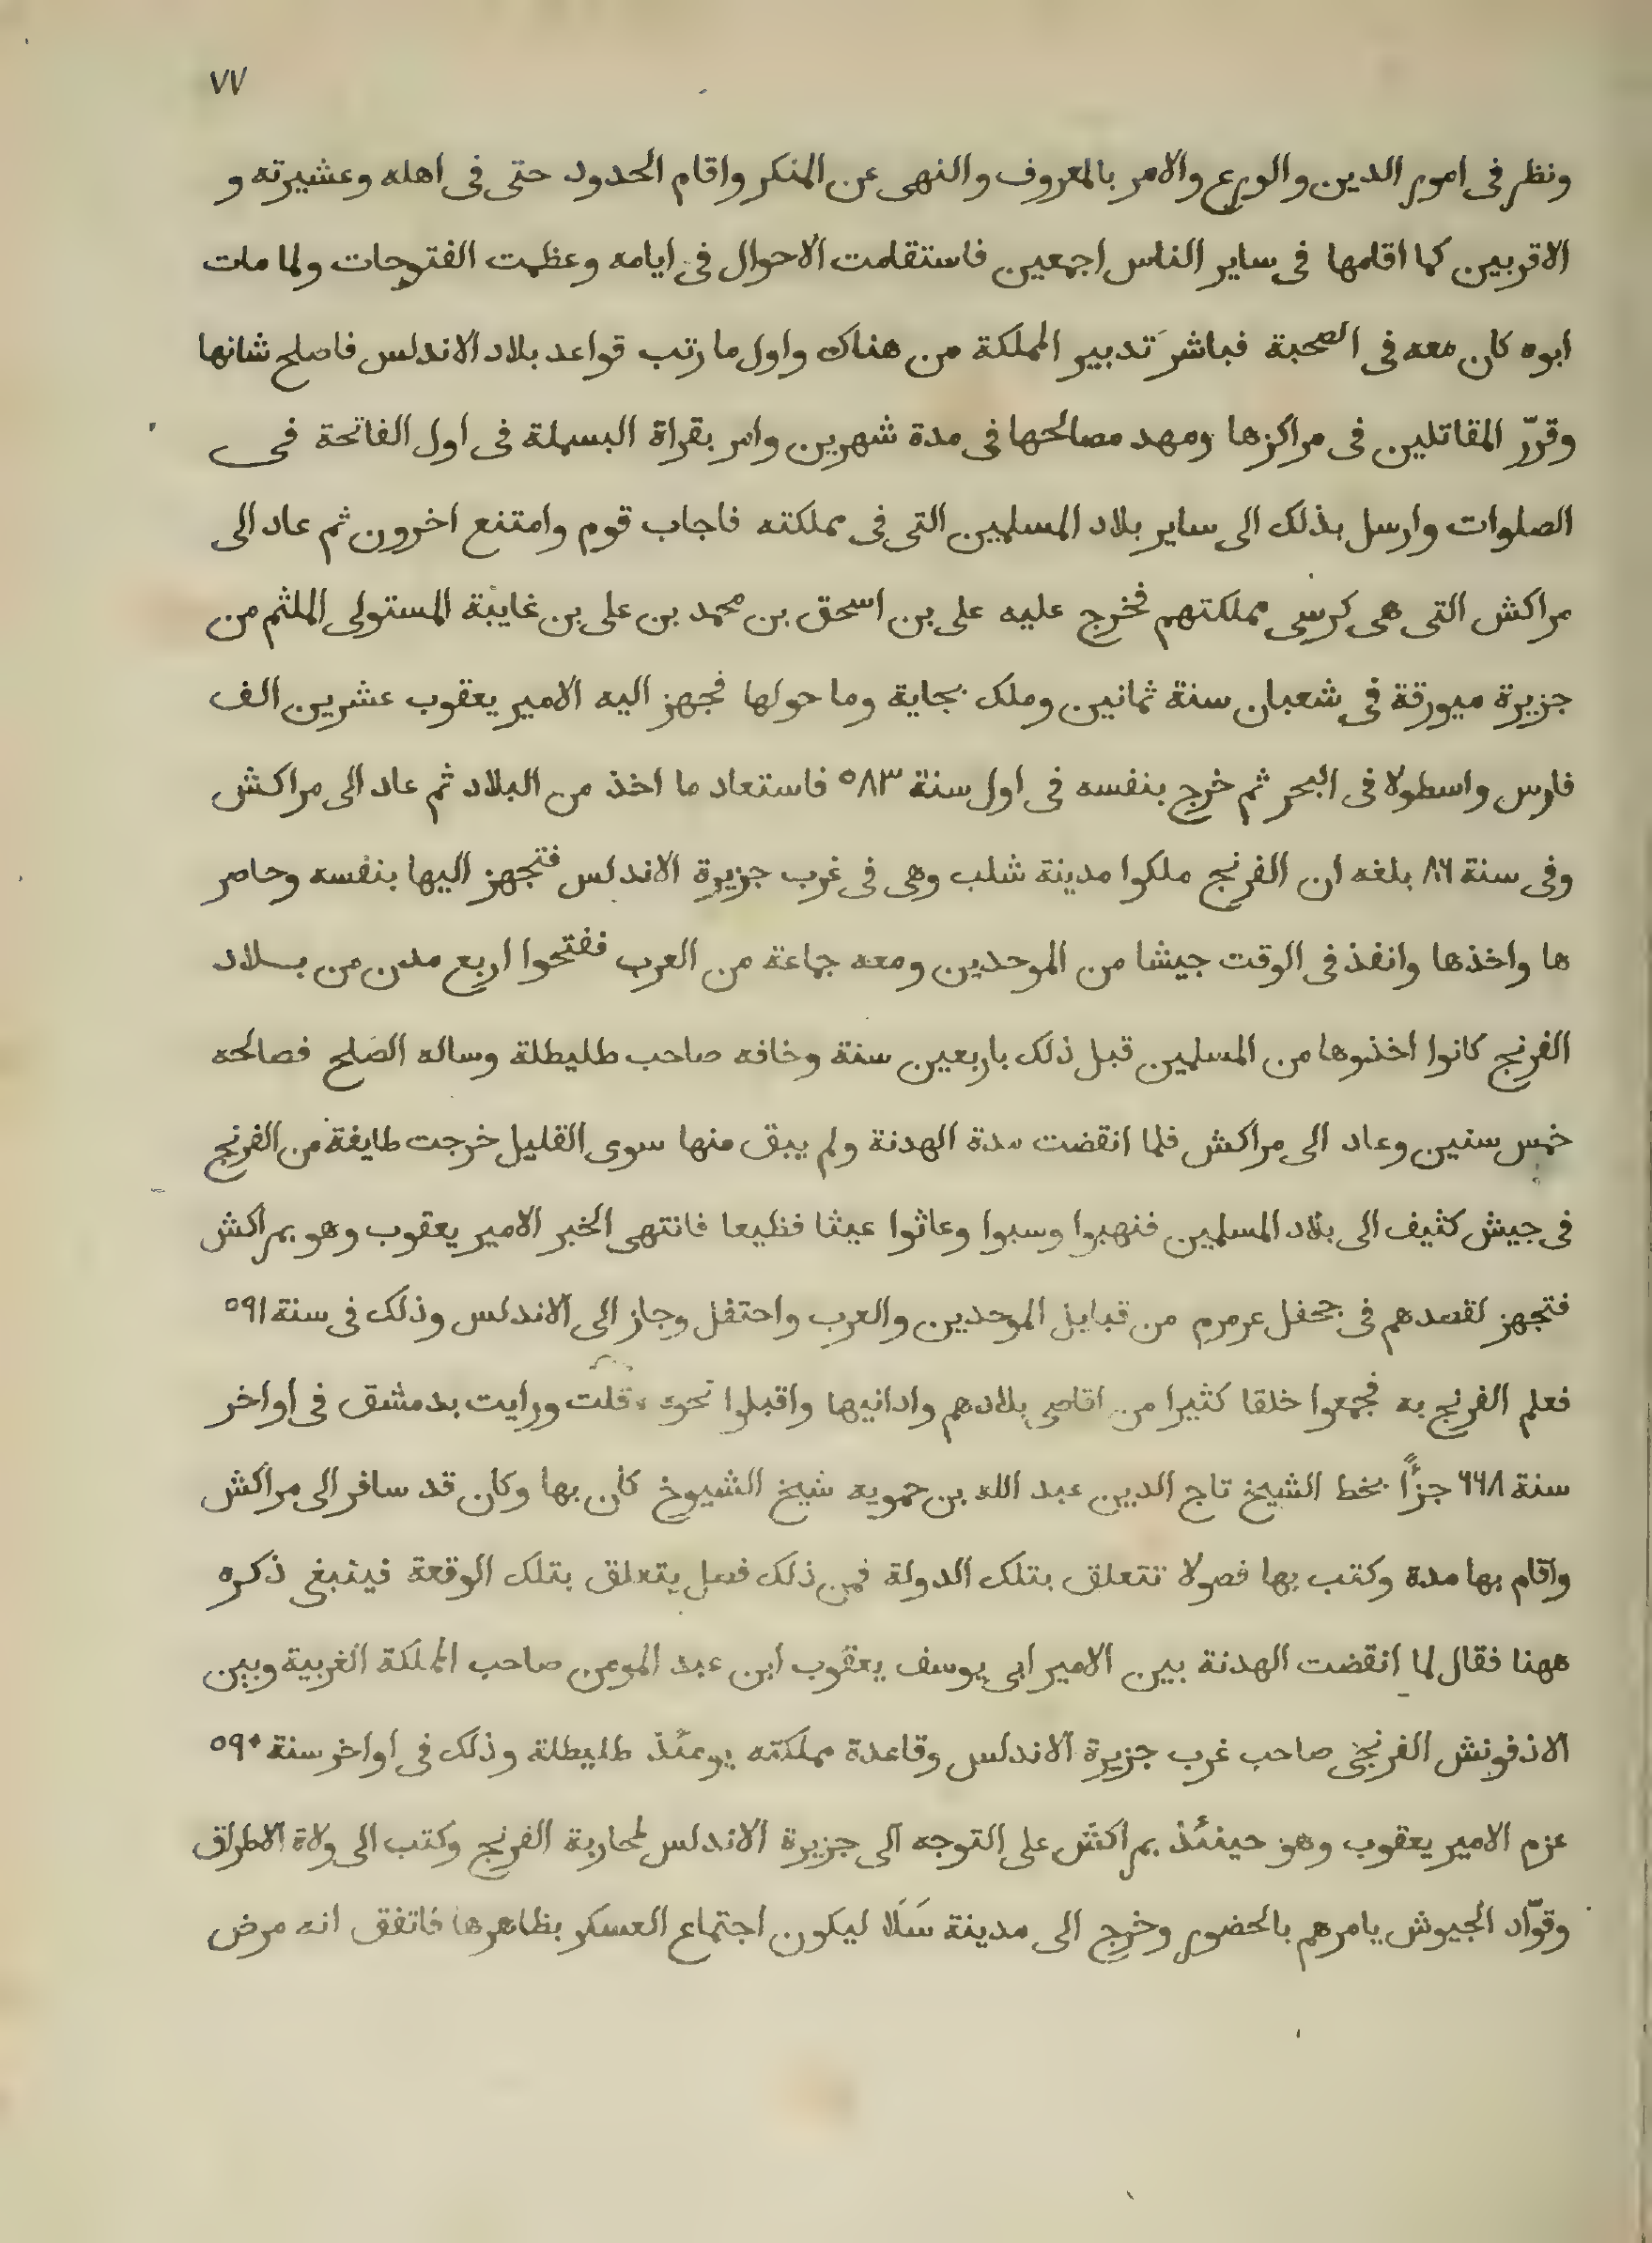 ٧٧
ونظر فى امور الدين والورع والامر بالمعروف والنهى عن المنكر واقام الحدود حتى فى اهله وعشيرته و
الاقربين كما اقامها فى ساير الناس اجمعين فاستقامت الاحوال فى ايامه وعظمت الفتوحات ولما مات
ابوه كان معه فى الصحبة فباشر تدبير المملكة من هناك واول ما رتب قواعد بلاد الاندلس فاصلح شانها
وقرّر المقاتلين فى مراكزها ومهد مصالحها فى مدة شهرين وامر بقراة البسملة فى اول الفاتحة فى
الصلوات وارسل بذلك الى ساير بلاد المسلمين التى فى مملكته فاجاب قوم وامتنع اخرون ثم عاد الى
مراكش التى هى كرسى مملكتهم فخرج عليه على بن اسحق بن محمد بن على بن غاينة المستولى الملثم من
جزيرة ميورقة فى شعبان سنة ثمانين وملك بجاية وما حولها فجهز اليه الامير يعقوب عشرين الف
فارس واسطولا فى البحر ثم خرج بنفسه فى اول سنة ٥٨٣ فاستعاد ما اخذ من البلاد ثم عاد الى مراكش
وفى سنة ٨٦ بلغه ان الفرنج ملكوا مدينة شلب وهى فى غرب جزيرة الاندلس فتجهز اليها بنفسه وحاصر
ها واخذها وانفذ فى الوقت جيشا من الموحدين ومعه جماعة من العرب ففتحوا اربع مدن من بلاد
الفرنج كانوا اخذوها من المسلمين قبل ذلك باربعين سنة وخافه صاحب طليطلة وساله الصلح فصالحه
خمس سنين وعاد الى مراكش فلما انقضت مدة الهدنة ولم يبق منها سوى القليل خرجت طايفة من الفرنج
فى جيش كثيف الى بلاد المسلمين فنهبوا وسبوا وعاثوا عيثا فظيعا فانتهى الخبر الامير يعقوب وهو بمراكش
فتجهز لقصدهم فى جحفل عرمرم من قبايل الموحدين والعرب واحتفل وجاز الى الاندلس وذلك فى سنة ٥٩١
فعلم الفرنج به فجمعوا خلقا كثيرا من اقاصى بلادهم وادانيها واقبلوا نحوه قلت ورايت بدمشق فى اواخر
سنة ٦٦٨ جزأً بخط الشيخ تاج الدين عبد الله بن حمويه شيخ الشيوخ كان بها وكان قد سافر الى مراكش
واقام بها مدة وكتب بها فصولا تتعلق بتلك الدولة فمن ذلك فصل يتعلق بتلك الوقعة فينبغى ذكره
ههنا فقال لما انقضت الهدنة بين الامير ابى يوسف يعقوب ابن عبد المومن صاحب المملكة الغربية وبين
الاذفونش الفرنجى صاحب غرب جزيرة الاندلس وقاعدة مملكته يومئذ طليطلة وذلك فى اواخر سنة ٥٩٠
عزم الامير يعقوب وهو حينئذ بمراكش على التوجه الى جزيرة الاندلس لمحاربة الفرنج وكتب الى ولاة الاطراف
وقوّاد الجيوش يامرهم بالحضور وخرج الى مدينة سَلَا ليكون اجتماع العسكر بظاهرها فاتفق انه مرض